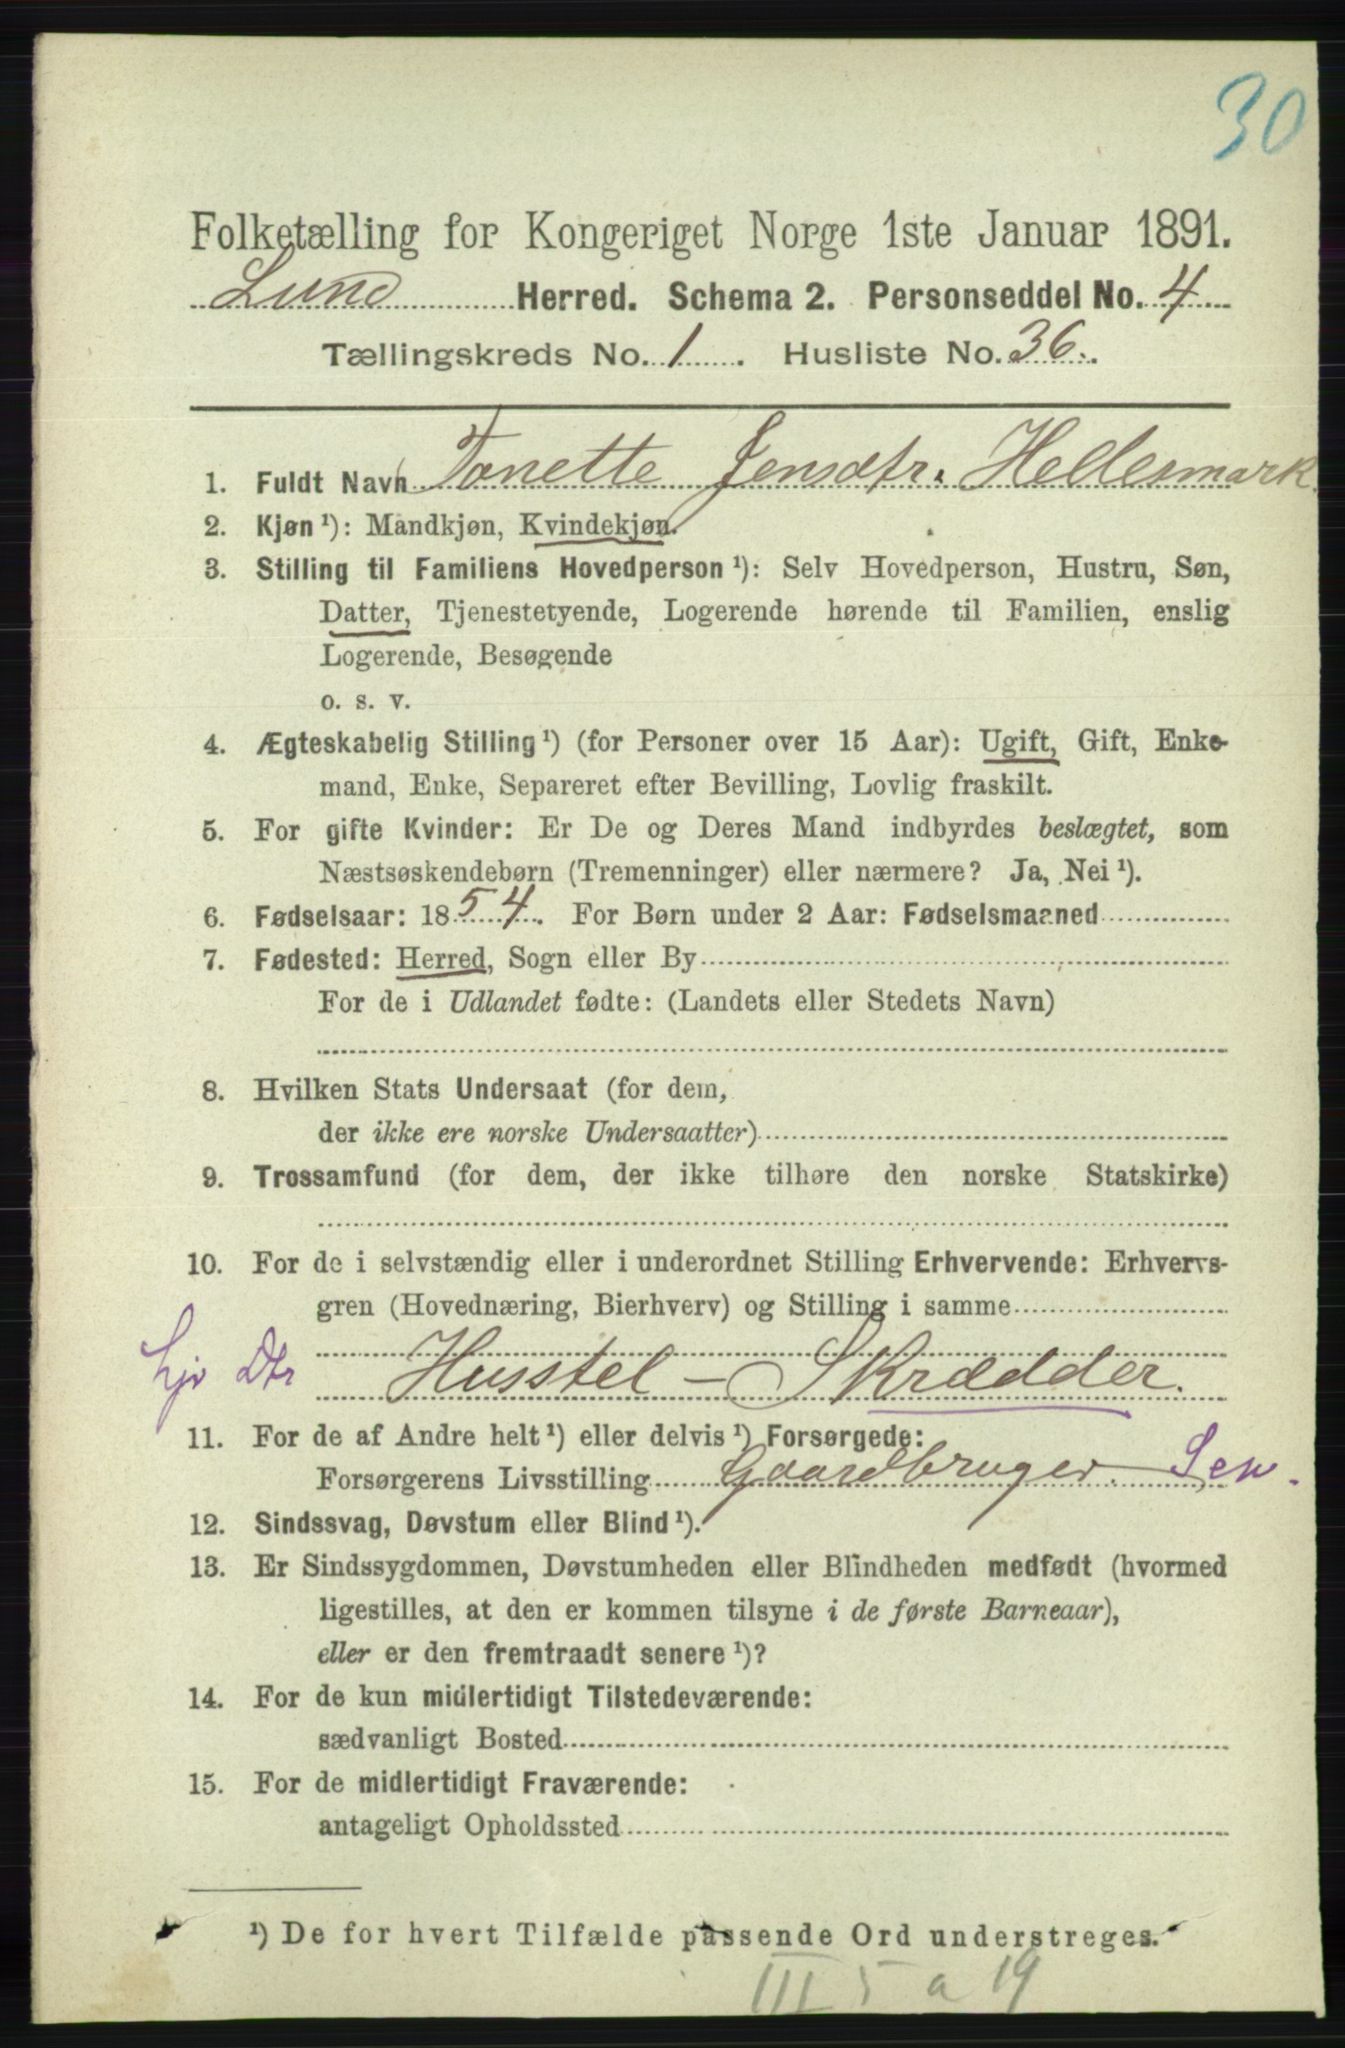 30
Folketælling for Kongeriget Norge 1ste Januar 1891.
Lund Herred. Schema 2. Personseddel No. 4
Tællingskreds No. 1. Husliste No. 36.
1. Fuldt Navn Tonette Jensdtr. Hellesmark.
2. Kjøn ¹): Mandkjøn, Kvindekjøn.
3. Stilling til Familiens Hovedperson ¹): Selv Hovedperson, Hustru, Søn,
Datter, Tjenestetyende, Logerende hørende til Familien, enslig
Logerende, Besøgende
o. s. v.
4. Ægteskabelig Stilling ¹) (for Personer over 15 Aar): Ugift, Gift, Enke-
mand, Enke, Separeret efter Bevilling, Lovlig fraskilt.
5. For gifte Kvinder: Er De og Deres Mand indbyrdes beslægtet, som
Næstsøskendebørn (Tremenninger) eller nærmere? Ja, Nei ¹).
6. Fødselsaar: 1854. For Børn under 2 Aar: Fødselsmaaned
7. Fødested: Herred, Sogn eller By
For de i Udlandet fødte: (Landets eller Stedets Navn)
8. Hvilken Stats Undersaat (for dem,
der ikke ere norske Undersaatter)
9. Trossamfund (for dem, der ikke tilhøre den norske Statskirke)
10. For de i selvstændig eller i underordnet Stilling Erhvervende: Erhvervs-
gren (Hovednæring, Bierhverv) og Stilling i samme
hjv Dtr Husstel - Skrædder.
11. For de af Andre helt ¹) eller delvis ¹) Forsørgede:
Forsørgerens Livsstilling Gaardbruger. Sew.
12. Sindssvag, Døvstum eller Blind ¹).
13. Er Sindssygdommen, Døvstumheden eller Blindheden medfødt (hvormed
ligestilles, at den er kommen tilsyne i de første Barneaar),
eller er den fremtraadt senere ¹)?
14. For de kun midlertidigt Tilstedeværende:
sædvanligt Bosted
15. For de midlertidigt Fraværende:
antageligt Opholdssted
¹) De for hvert Tilfælde passende Ord understreges.
III 5 a 19